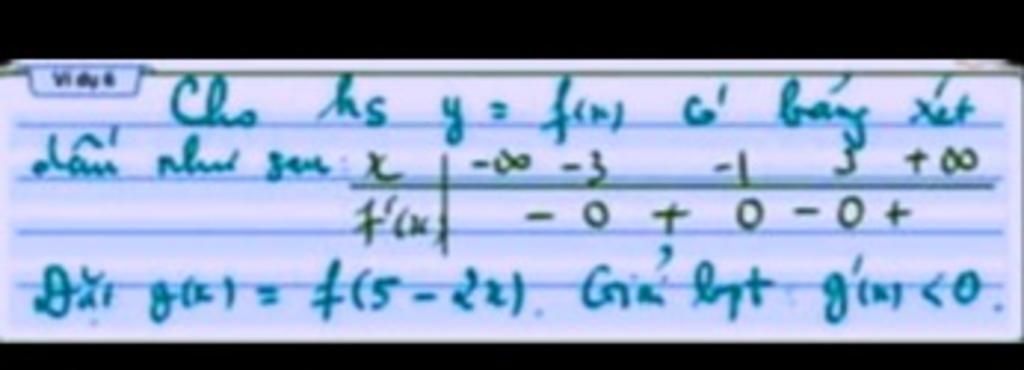 Ví dụ 6
Cho hs y = f(x) có bảng xét
dấu như sau: x | -∞ -3 -1 3 +∞
f'(x) | - 0 + 0 - 0 +
Đặt g(x) = f(5 - 2x). Giải bpt g'(x) < 0.